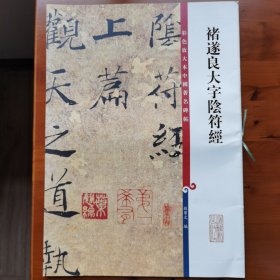 褚遂良大字陰符經
彩色放大本中國著名碑帖
陰符經
上篇
觀天之道執